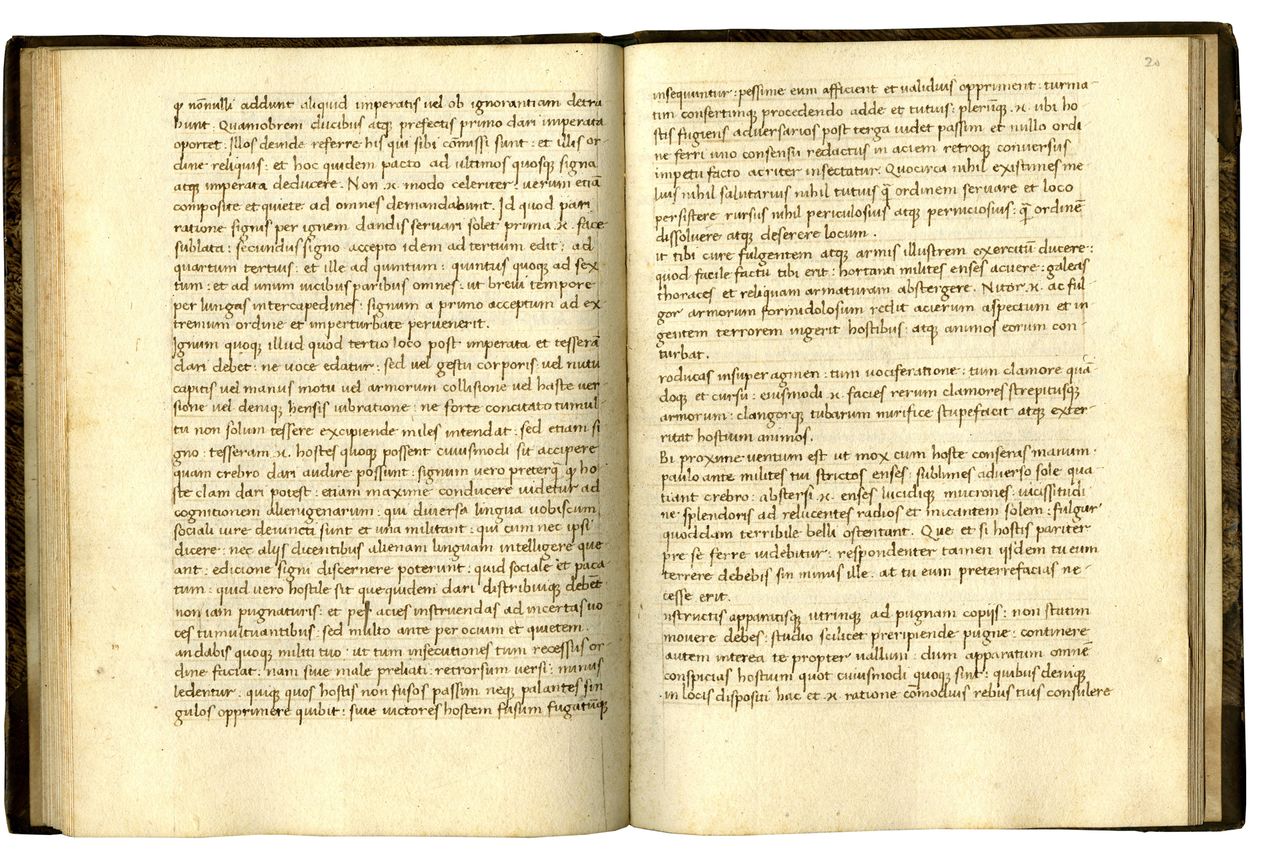 ꝙ nōnulli addunt aliquid imperatis uel ob ignorantiam detra
hunt. Quamobrem ducibus atqꝫ prefectis primo dari imperata
oportet. Illos deinde referre his qui sibi comissi sunt: et illis or-
dine reliquis: et hoc quidem pacto ad ultimos quosqꝫ signa
atqꝫ imperata deducere. Non .n. modo celeriter: uerum etiā
composite et quiete ad omnes demandabunt. Id quod pari
ratione signis per ignem dandis seruari solet prima .n. face
sublata: secundus signo accepto idem ad tertium edit: ad
quartum tertius: et ille ad quintum: quintus quoqꝫ ad sex
tum: et ad unum uicibus paribus omnes: ut breui tempore
per lungas intercapedines: signum a primo acceptum ad ex-
tremum ordine et imperturbate peruenerit.
Ignum quoqꝫ illud quod tertio loco post imperata et tesserā
dari debet: ne uoce edatur: sed uel gestu corporis: uel nutu
capitis uel manus motu uel armorum collisione uel haste uer-
sione uel deniqꝫ hensis uibratione: ne forte concitato tumul-
tu non solum tessere excipiende miles intendat: sed etiam si
gno: tesseram .n. hostes quoqꝫ possent cuiusmodi sit accipere
quam crebro dari audire possunt: signum uero preterqꝫ ꝙ ho
ste clam dari potest: etiam maxime conducere uidetur ad
cognitionem alienigenarum: qui diuersa lingua uobiscum
sociali iure deuincti sunt et una militant: qui cum nec ipsi
dicere: nec alijs dicentibus alienam linguam intelligere que
ant: edicione signi discernere poterunt: quid sociale et paca
tum: quid uero hostile sit que quidem dari distribuiqꝫ debēt
non iam pugnaturis: et per acies instruendas ad incertas uo
ces tumultuantibus: sed multo ante per ocium et quietem.
andabis quoqꝫ militi tuo: ut tum insecutiones tum recessus or-
dine faciat: nam siue male preliati: retrorsum uersi: minus
ledentur: quiqꝫ quos hostis non fusos passim neqꝫ palantes sin
gulos opprimere quibit: siue uictores hostem fusum fugatūqꝫ
20
insequuntur: pessime eum afficient et ualidius oppriment: turma-
tim confertimqꝫ procedendo adde et tutius: plerūqꝫ .n. ubi ho-
stis fugiens aduersarios post terga uidet passim et nullo ordi
ne ferri uno consensu redactus in aciem retroqꝫ conuersus
impetu facto acriter insectatur. Quocirca nihil existimes me
lius nihil salutarius nihil tutius q̄ ordinem seruare et loco
persistere rursus nihil periculosius atqꝫ perniciosius: q̄ ordinē
dissoluere atqꝫ deserere locum.
it tibi cure fulgentem atqꝫ armis illustrem exercitū ducere:
quod facile factu tibi erit: hortanti milites enses acuere: galeas
thoraces et reliquam armaturam abstergere. Nitor .n. ac ful-
gor armorum formidolosum redit acierum aspectum et in
gentem terrorem ingerit hostibus: atqꝫ animos eorum con-
turbat.
roducas insuper agmen: tum uociferatione: tum clamore quā
doqꝫ et cursu: eiusmodi .n. facies rerum clamores strepitusqꝫ
armorum: clangorqꝫ tubarum mirifice stupefacit atqꝫ exter-
ritat hostium animos.
Bi proxime uentum est ut mox cum hoste conseras manum.
paulo ante milites tui strictos enses: sublimes aduerso sole qua
tiant crebro: abstersi .n. enses lucidiqꝫ mucrones: uicissitudi
ne splendoris ad relucentes radios et micantem solem: fulgur
quoddam terribile belli ostentant. Que et si hostis pariter
pre se ferre uidebitur: respondenter tamen ijsdem tu eum
terrere debebis sin minus ille. at tu eum preterrefacias ne-
cesse erit.
nstructis apparatisqꝫ utrinqꝫ ad pugnam copijs: non statim
mouere debes: studio scilicet preripiende pugne: continere
autem interea te propter uallum: dum apparatum omnē
conspicias hostium quot cuiusmodi quoqꝫ sint: quibus deniqꝫ
in locis dispositi hac et .n. ratione comodius rebus tuis consulere